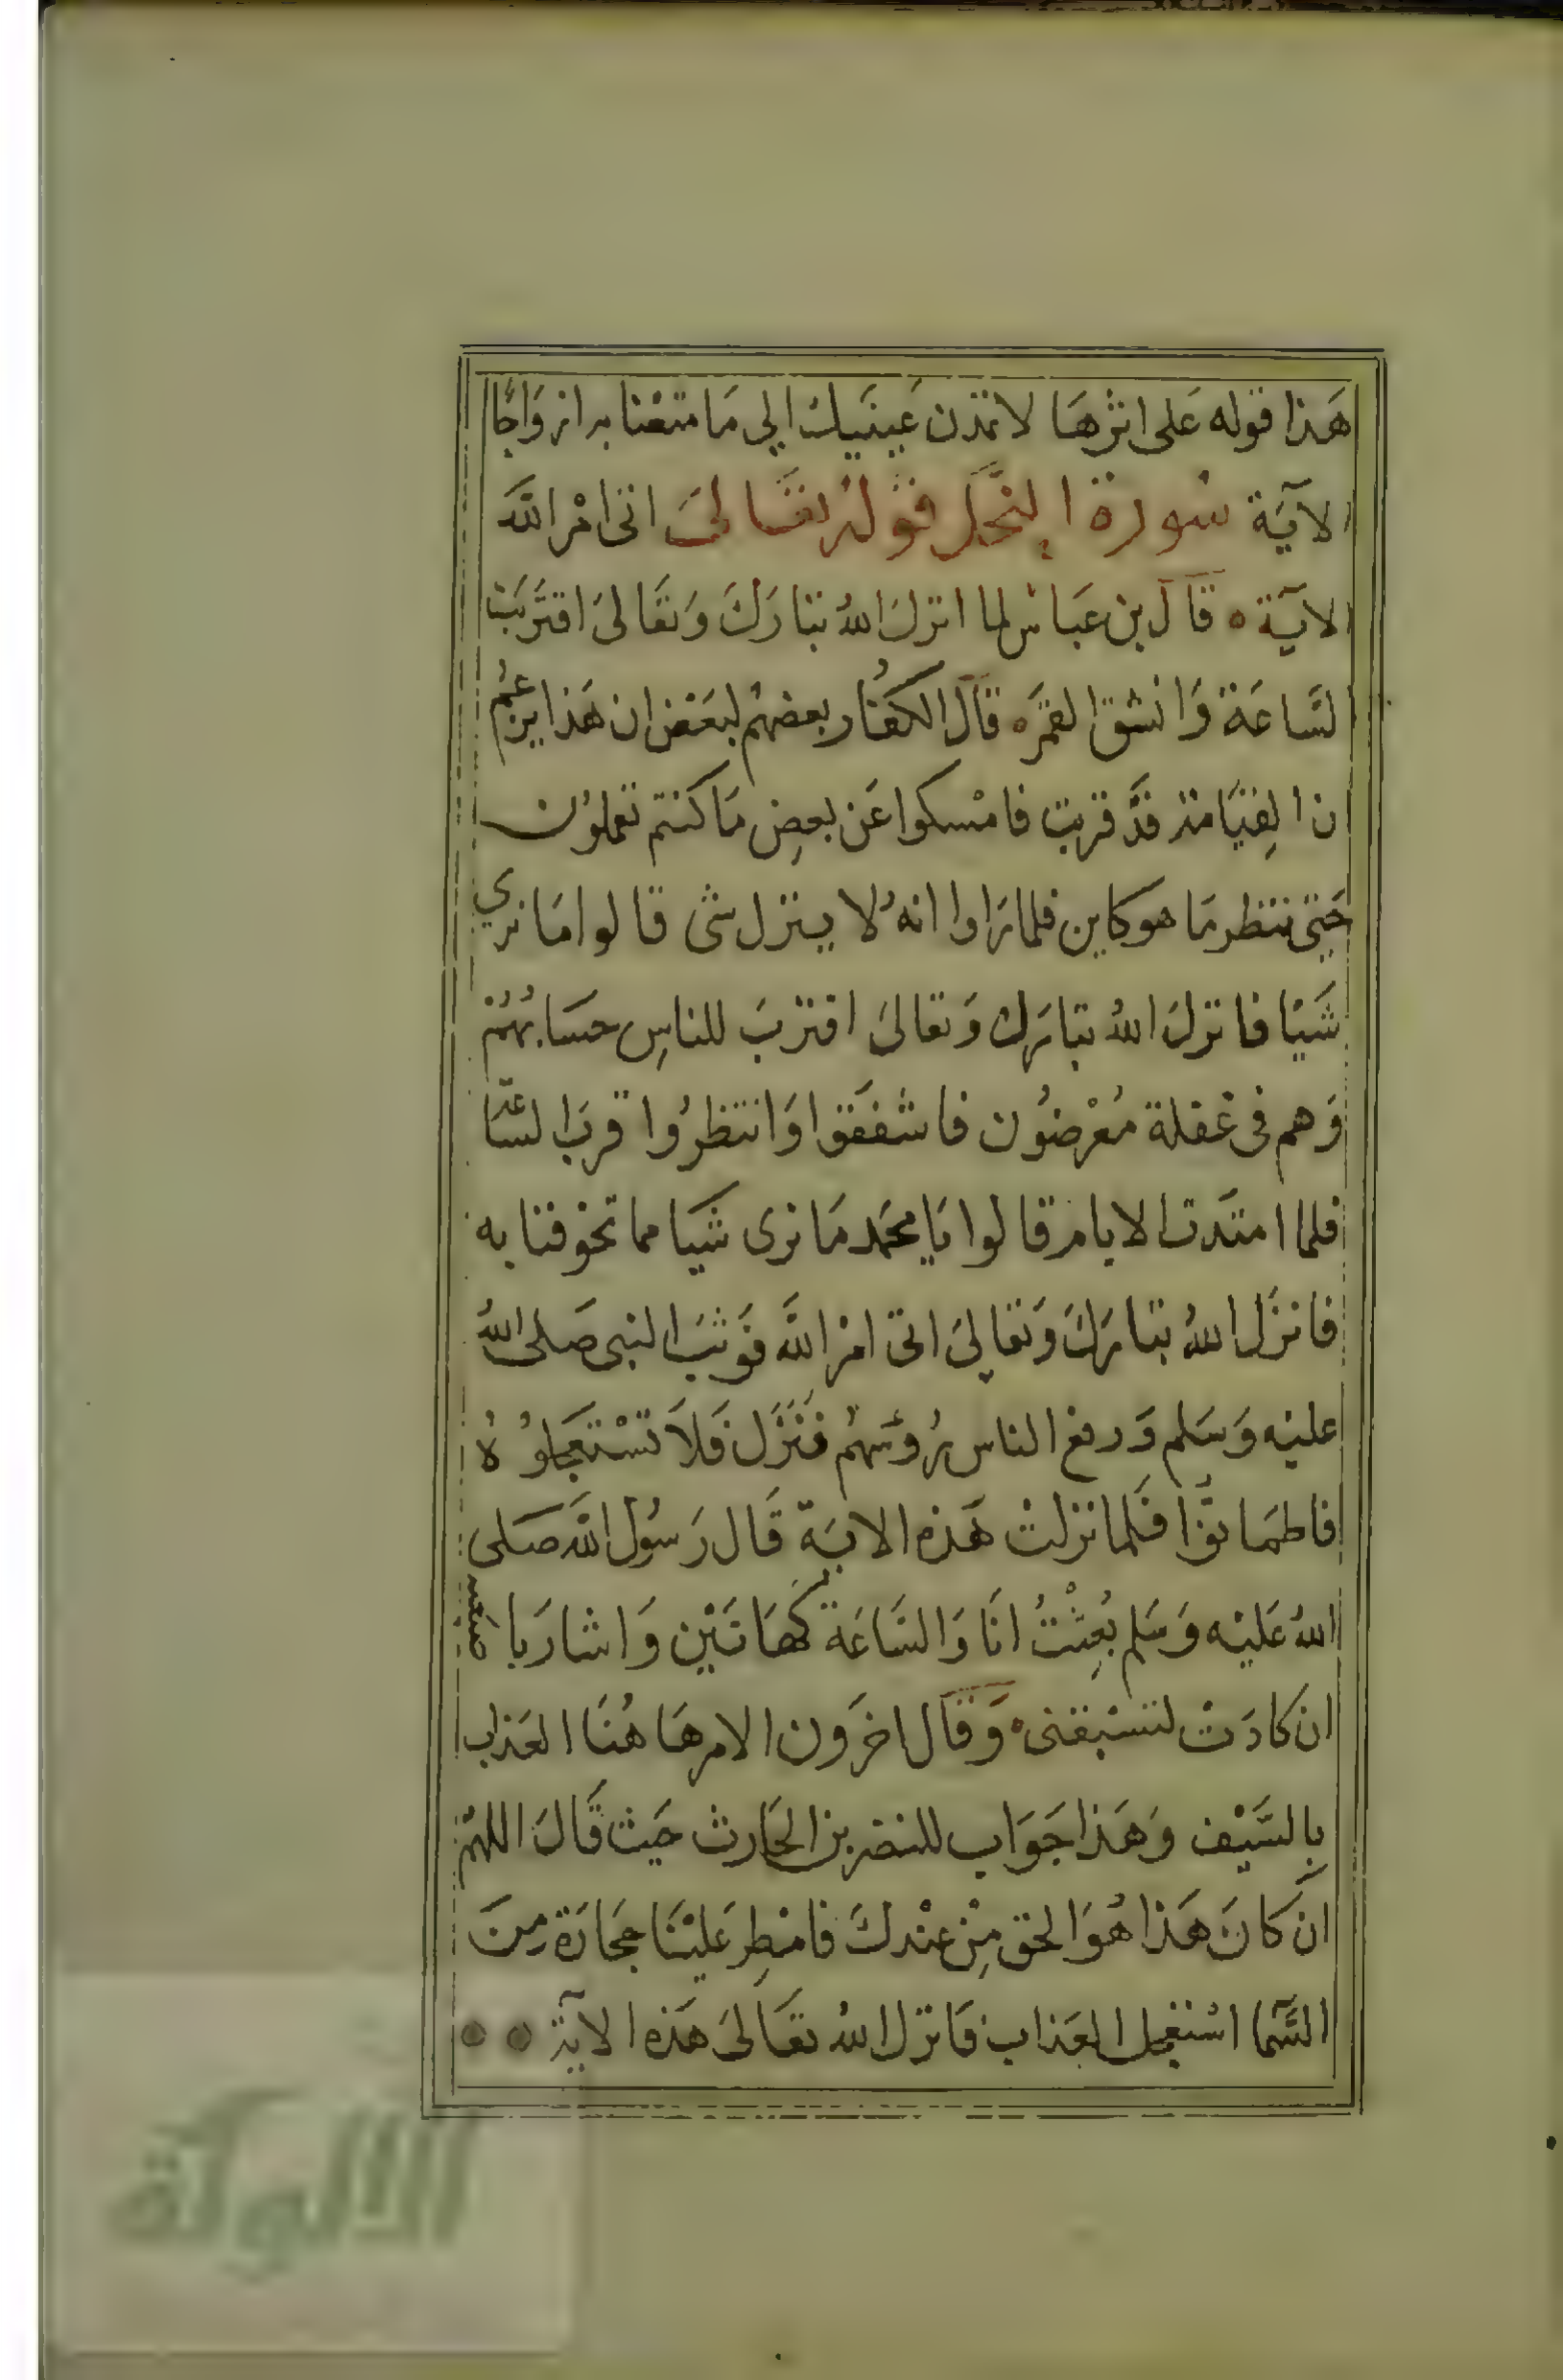 هَذا قوله عَلى اثرهَا لا تمدن عَينَيك الي مَا متعْنا به ازوَاجًا
الآيَة سُورة النحَل قوْلهُ تعَالىَ اتى امْر اللَّه
الآيَة ه قاَل بن عَباس لما انزلَ اللهُ تبَارَكَ وَتعَالىَ اقترَبَت
لسَّاعَة وَانشق القمَره قاَل الكفُار بعضهُم لبعَض ان هَذا يزعُم
ن القِيَامة قدَّ قربت فامْسكوا عَن بعضِ مَا كنتم تعملوُن
حَتى ننتظر مَا هو كاين فلما رَاوا انهُ لا ينزل شى قالوا مَا نري
شَيْا فانزلَ اللهُ تبارَك وَتعالىَ اقتربَ للناسِ حسَابهُمْ
وَهم فى غفلة مُعْرضوُن فاشفَقوا وَانتظرُوا قربَ السَّاعة
فلما امتدَت الايام قالوا يَا محَمد مَا نرى شَيا مما تخوفنا به
فانزَل اللهُ تبارَكَ وَتعَاليَ اتى امرُ اللَّه فوَثبَ النبى صَلى اللهُ
عليْه وَسَلم وَرفع الناس رُوسَهُم فنَزَل فلاَ تسْتعجلوُهُ
فاطمانوُّا فلَما نزلتْ هَذه الايَة قَال رَسُول اللَّه صَلى
اللهُ عَليْه وَسَلم بُعِثْتُ انَا وَالسَّاعَة كَهاتَيْن وَاشارَ باصبعيه
ان كادَتْ لتسْبقنى ه وَقال اخرَون الامر هَاهُنَا العَذاب
بِالسَّيْف وَهَذا جَوَاب للنضر بن الحَارث حَيث قَالَ اللهُمّ
ان كانَ هَذا هُوَ الحق مِنْ عنْدكَ فامْطِر عَليْنَا حجَارَة مِنَ
السَّمآ اسْتعْجل العَذاب فَانزل اللهُ تعَالىَ هَذه الآية
الألوكة